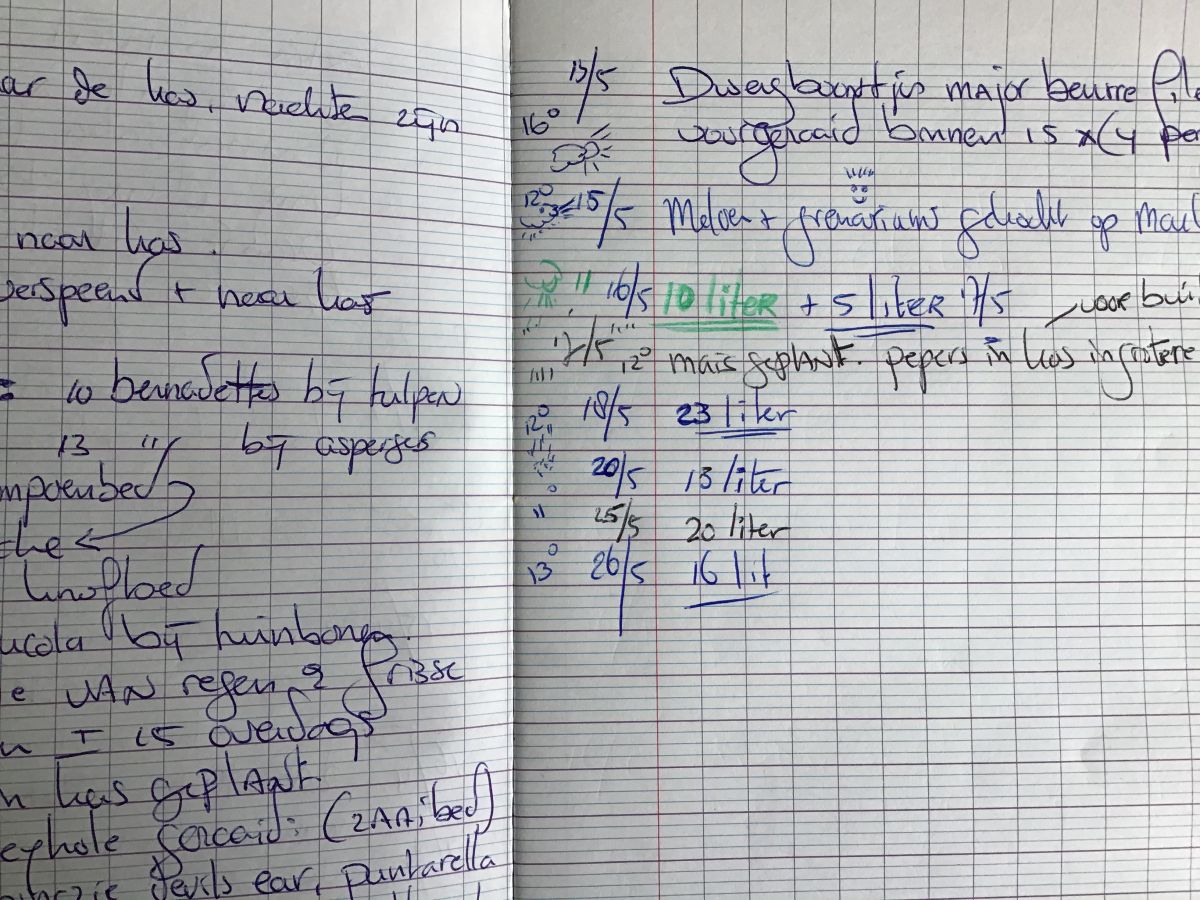 ar de kas, nachten zijn
naar kas.
verspeend + naar kas
: 10 bernadettes bij tulpen
13 " bij asperges
mpoenbed
che ←
knofloed
ucola bij tuinbonen.
e van regen & frisse
n ± 15 overdags
n kas geplant.
eyhole gezaaid: (zaaibed)
devils ear, puntarella
13/5 Dwergboontjes major beurre file
16° voorgezaaid binnen 15 x (4 per
12° 15/5 Meloen + geraniums gekocht op
" 16/5 10 liter + 5 liter 17/5
voor bui
17/5 12° mais geplant. pepers in kas in grotere
12° 18/5 23 liter
20/5 13 liter
" 25/5 20 liter
13° 26/5 16 lit